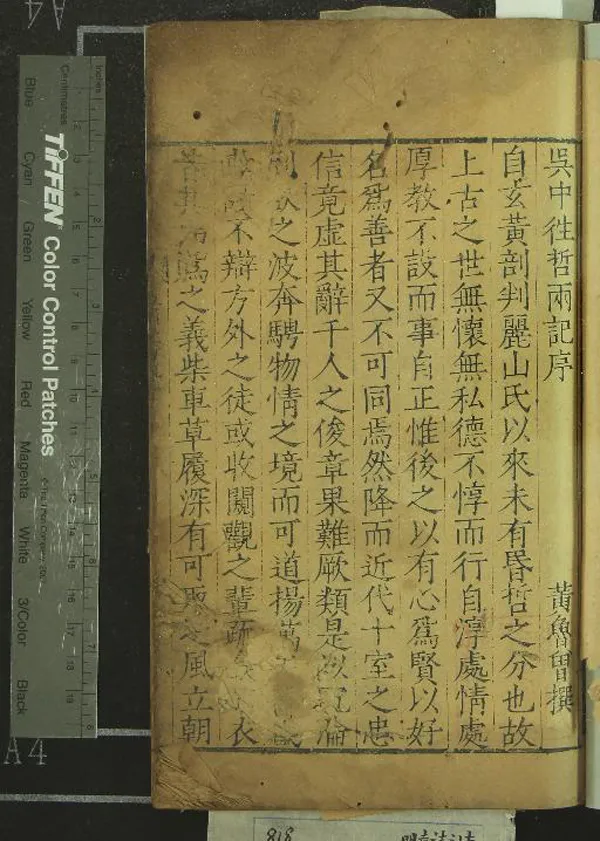 吳中徃哲兩記序
黃魯曾撰
自玄黃剖判麗山氏以來未有昏哲之分也故
上古之世無懷無私德不惇而行自淳處情處
厚教不設而事自正惟後之以有心爲賢以好
名爲善者又不可同焉然降而近代十室之忠
信竟虛其辭千人之俊章果難厥類是以冠倫
之波奔騁物情之境而可道揚萬
不辯方外之徒或收闚觀之輩跡衣
篤之義柴車草履深有可風立朝
Inches
Centimetres
TIFFEN Color Control Patches
Blue Cyan Green Yellow Red Magenta White 3/Color Black
A4
A4
818